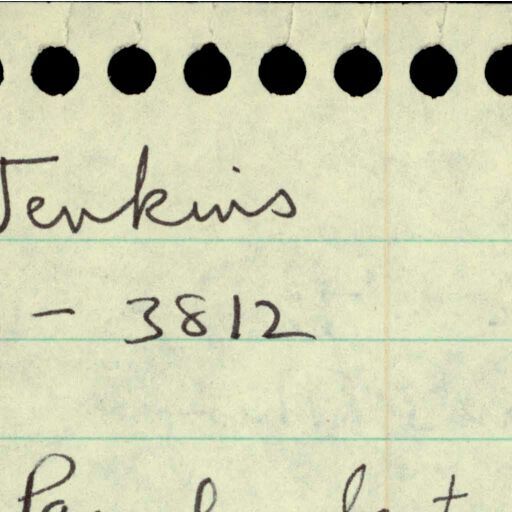 Jenkins
- 3812